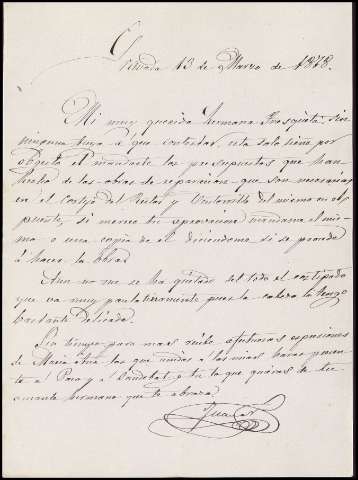 Granada 13 de Marzo de 1878.
Mi muy querida hermana Frasquita: sin
ninguna tuya á que contestar, esta solo tiene por
objeto el mandarte los presupuestos que han
hecho de las obras de reparacion que son necesarias
en el Cortijo del y Ventorrillo del mismo en el
puente, si merece tu aprovacion mandame el mis-
mo o una copia de el diciendome si se procede
á hacer la obra.
Aun no se me ha quitado del todo el costipado
que va muy paulatinamente pues la cabeza la tengo
bastante delicada.
Sin tiempo para mas recibe afectuosas espresiones
de Maria Ana las que unidas á las mias haras presen-
te á Paco y á Sandobal y tu la que quieras de tu
amante hermano que te abraza
Juan